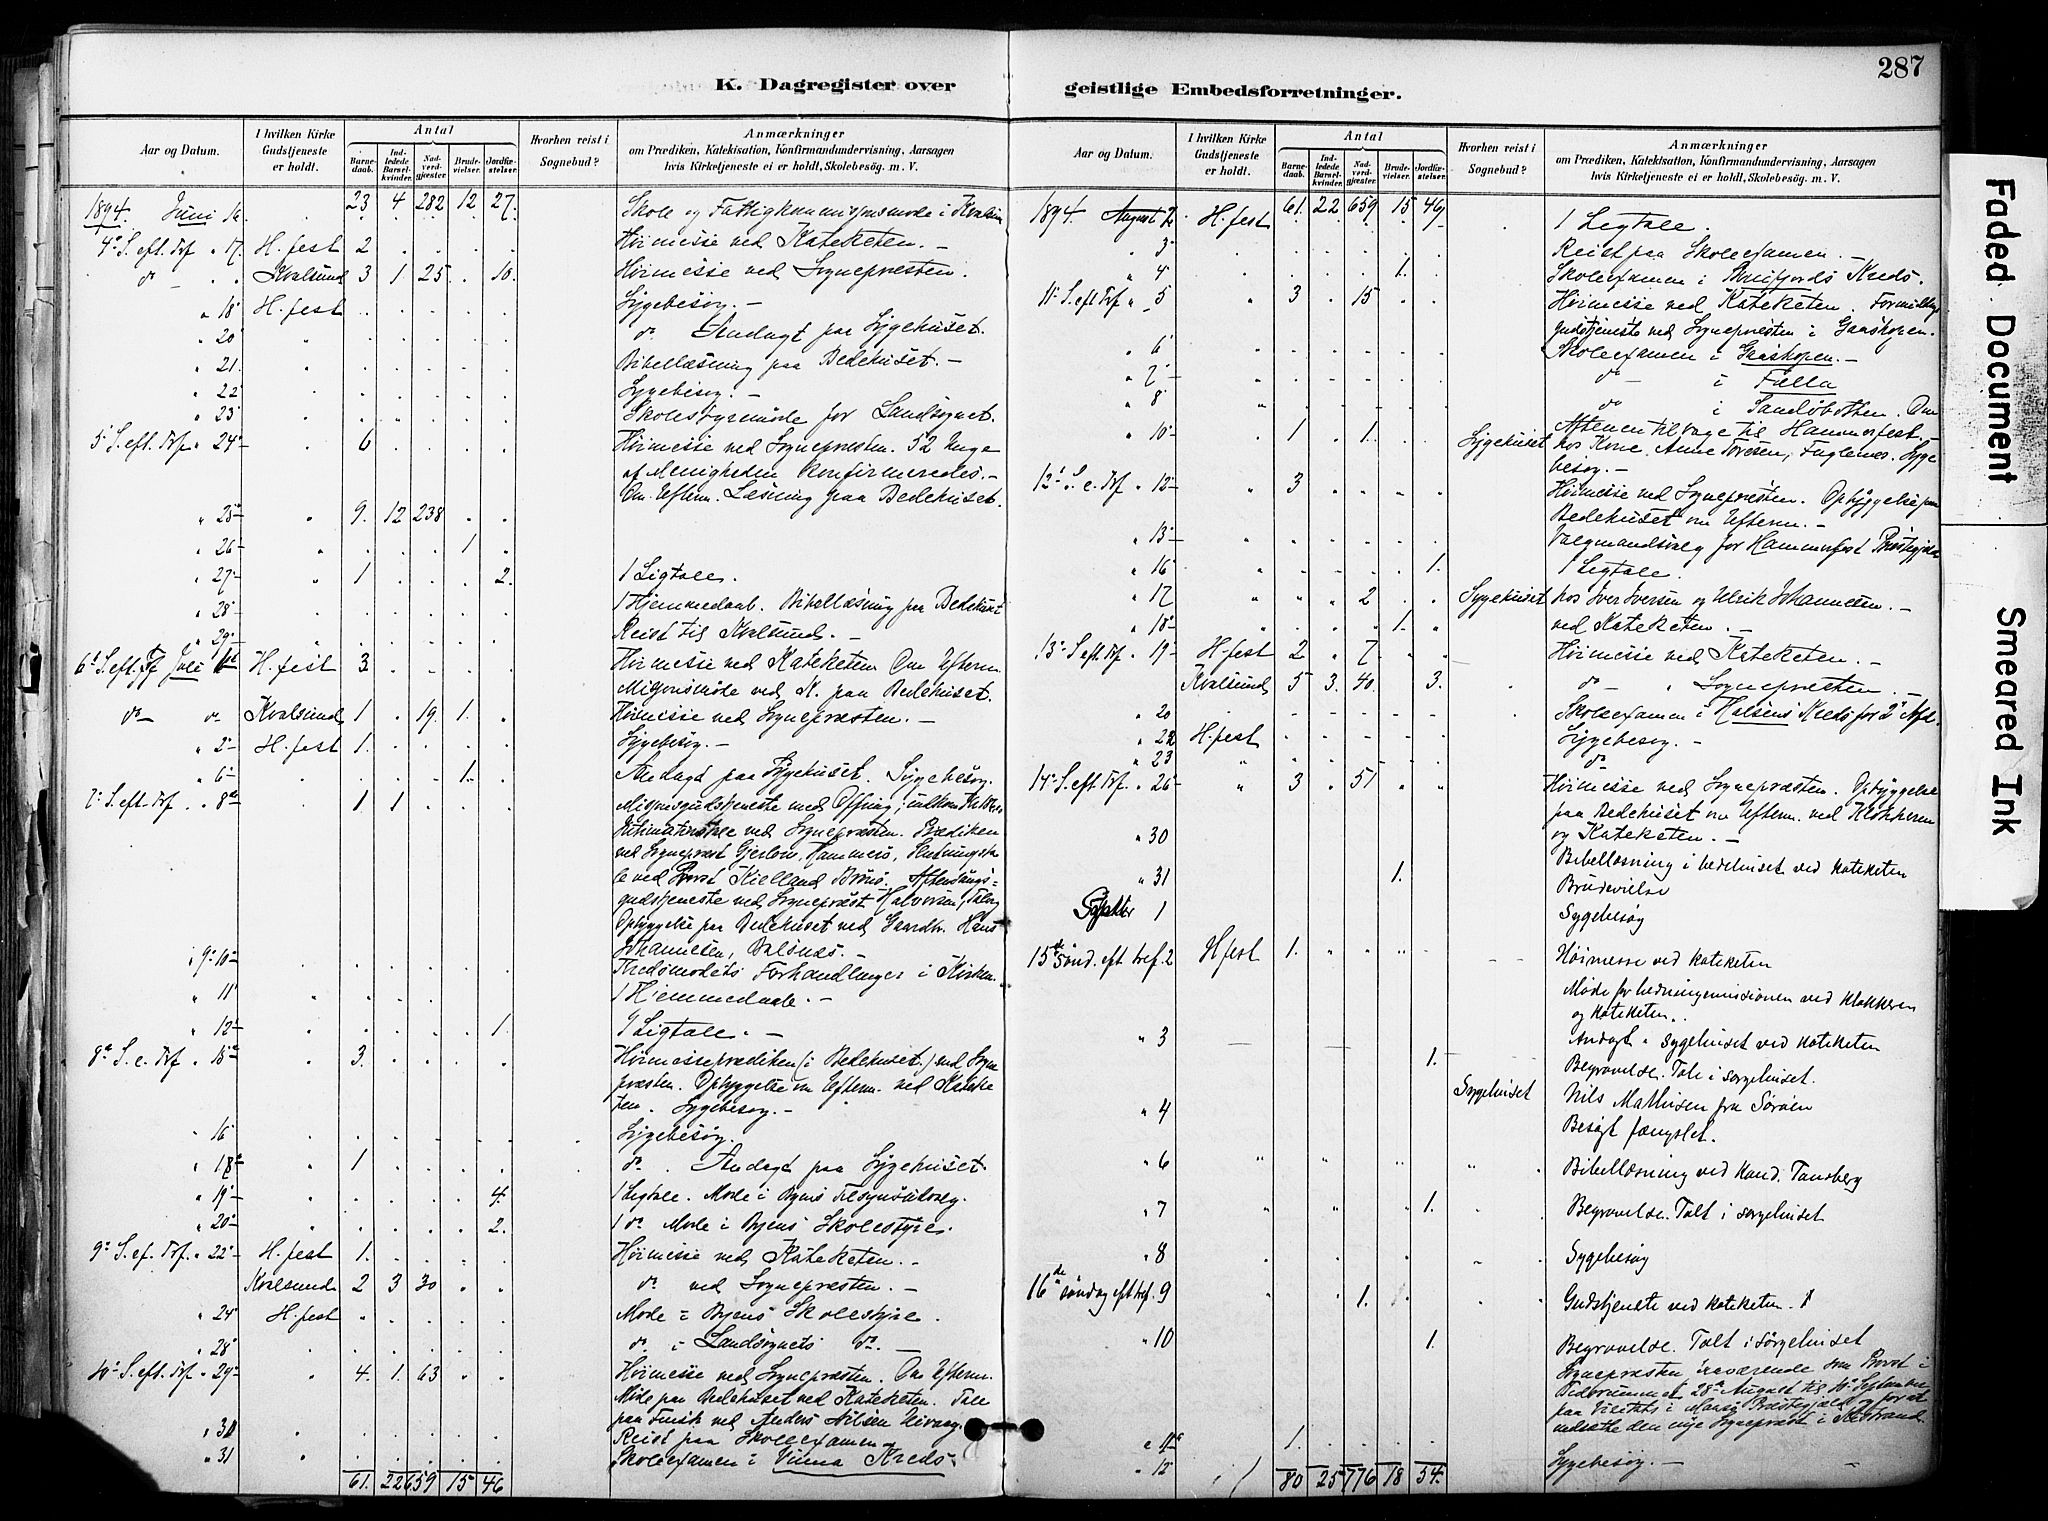 287
K. Dagregister over
geistlige Embedsforretninger.
Aar og Datum.
I hvilken Kirke Gudstjeneste er holdt.
Antal
Barnedaab.
Indledede Barselkvinder.
Nadverdgjester
Brudevielser.
Jordfæstelser.
Hvorhen reist i Sognebud?
Anmærkninger
om Prædiken, Katekisation, Konfirmandundervisning, Aarsagen
hvis Kirketjeneste ei er holdt, Skolebesög. m. V.
1894. Juni 16. 23 4 282 12 27. Skole og Fattigkommissionsmøde i Kvalsund
4de S. eft. Trf. " 17. H.fest 2 Høimesse ved Kateketen. –
do – Kvalsund 3 1 25 10. Høimesse ved Sognepresten.
" 18 H.fest Sygebesøg. –
" 20 do Andagt paa Sygehuset.
" 21. Bibellæsning paa Bedehuset. –
" 22 Sygebesøg. –
" 23 Skolestyremöde for Landsognet.
5 S. eft. Trf. " 24 6 Høimesse ved Sognepresten. 52 Unge
af Menigheden konfirmeredes. –
Om Efterm. Læsning paa Bedehuset.
" 25 9. 12 238
" 26 1
" 27 1 2. 1 Ligtale.
" 28 1 Hjemmedaab. Bibellæsning paa Bedehuset
" 29 Reist til Kvalsund. –
6 S. eft. Trf Juli 1 H.fest 3 Høimesse ved Kateketen Om Efterm.
Misjonsmöte ved K. paa Bedehuset.
do do Kvalsund 1 19. 1. Høimesse ved Sognepresten. –
" 2 H.fest 1. Sygebesøg. –
" 6 1. Andagt paa Sygehuset. Sygebesøg.
7 S. eft. Trf. " 8 1 1 Misjonsgudstjeneste med Offring;
ved Sognepresten. Prædiken
ved Sogneprest Hammerö,
le ved Provst Kielland Brönö. Aftensangs=
gudstjeneste ved Sogneprest Halvorsen, Talvig
Opbyggelse paa Bedehuset ved Gaardbr. Hans
Johannesen, Balsnes. –
" 9-10 Kredsmødets Forhandlinger i Kirken.
" 11 1 Hjemmedaab. –
" 12 1. 1 Ligtale. –
8 S. e. Trf " 15 3. Høimesseprædiken (i Bedehuset.) ved Sogne
præsten. Opbyggelse om Efterm. ved Kateke
ten. Sygebesøg. –
" 16 Sygebesøg.
" 18 1 do. Andagt paa Sygehuset.
" 19 4. 1 Ligtale. Møde i Byens Tilsynsudvalg.
" 20 2. 1 do Møde i Byens Skolestyre.
9 S. ef. Trf. " 22 H.fest 1. Høimesse ved Kateketen. –
Kvalsund 2 3 30 do ved Sognepresten. –
" 24 H.fest Møde i Byens Skolestyre.
" 28 do i Landsognets do. –
10 S. eft. Trf " 29 4. 1. 63 Høimesse ved Sognepresten. Om Efterm.
Møde paa Bedehuset ved Kateketen. Tale
paa Finsk ved Anders Nilsen
" 30 Reist paa Skoleexamen
" 31 Skoleexamen i Vinna Kreds.
61. 22 659 15 46
Aar og Datum.
I hvilken Kirke Gudstjeneste er holdt.
Antal
Barnedaab.
Indledede Barselkvinder.
Nadverdgjester
Brudevielser.
Jordfæstelser.
Hvorhen reist i Sognebud?
Anmærkninger
om Prædiken, Katekisation, Konfirmandundervisning, Aarsagen
hvis Kirketjeneste ei er holdt, Skolebesög. m. V.
1894. August 2 H.fest 61. 22 659 15 46 1 Ligtale.
3 Reist paa Skoleexamen. –
" 4 1. Skoleexamen i Kreds.
11 S. eft Trf " 5 3 15 Høimesse ved Kateketen.
gudstjeneste ved Sognepresten i Gaashopen.
" 6 Skoleexamen i Gaashopen. –
" 7 do – i Fælla
" 8 do i Sandöbotten. Om
" 10 1 1. Aftenen tilbage til Hammerfest. –
Sygehuset hos Kone Anne Toresen, Fuglenes. Syge
besøg. –
12 S. e. Trf " 12 3 Høimesse ved Sognepresten. Opbyggelse paa
Bedehuset om Efterm. –
" 13 Valgmandsvalg for Hammerfest
" 16 1. 1 Ligtale.
" 17 2 Sygehuset hos Iver Iversen og Ulrik Johannesen. –
" 18 1. ved Kateketen. –
13 S eft. Trf " 19 H.fest 2 7 Høimesse ved Kateketen. –
Kvalsund 5 3. 40. 3. do – " Sognepresten. –
" 20 Skoleexamen i Kreds for 2 Afd.
" 22 H.fest Sygebesøg. –
" 23 do
14 S. eft. Trf. " 26 3 51 Høimesse ved Sognepresten. Opbyggelse
paa Bedehuset om Efterm. ved Klokkeren
og Kateketen. –
" 30 Bibellæsning i bedehuset ved kateketen
" 31 1. Brudevielse
Septbr 1 Sygebesøg
15de sönd. eft tref. 2 H fest 1. Høimesse ved kateketen
Møde for hedningemissionen ved klokkeren
og kateketen.
" 3 Andagt i sygehuset ved kateketen
1. Begravelse. Tale i sørgehuset.
" 4 Sygehuset Nils Mathisen fra Sörøen
Besøgt fængslet.
" 6 Bibellæsning ved kand. Tansberg
" 7 1. Begravelse. Talt i sørgehuset
" 8 Sygebesøg
16de söndag eft tref. 9 1. Gudstjeneste ved kateketen.
" 10 1. Begravelse. Talt i sørgehuset
Sognepresten fraværende som Provst i
28 August til 10 September
paa Visitats i Præstegjeld
indsatte den nye Sogneprest i
" 11 1.
" 12 Sygebesøg. –
80 25 776 18 54.
Faded Document
Smeared Ink